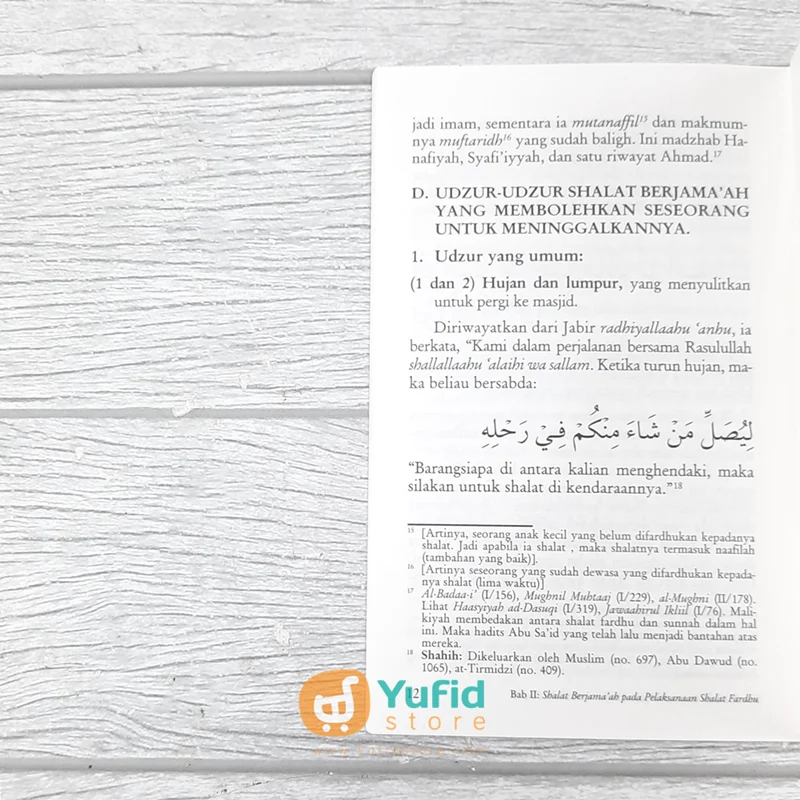 jadi imam, sementara ia mutanaffil¹⁵ dan makmum-
nya muftaridh¹⁶ yang sudah baligh. Ini madzhab Ha-
nafiyah, Syafi'iyyah, dan satu riwayat Ahmad.¹⁷
D. UDZUR-UDZUR SHALAT BERJAMA'AH
YANG MEMBOLEHKAN SESEORANG
UNTUK MENINGGALKANNYA.
1. Udzur yang umum:
(1 dan 2) Hujan dan lumpur, yang menyulitkan
untuk pergi ke masjid.
Diriwayatkan dari Jabir radhiyallaahu 'anhu, ia
berkata, "Kami dalam perjalanan bersama Rasulullah
shallallaahu 'alaihi wa sallam. Ketika turun hujan, ma-
ka beliau bersabda:
لِيُصَلِّ مَنْ شَاءَ مِنْكُمْ فِيْ رَحْلِهِ
"Barangsiapa di antara kalian menghendaki, maka
silakan untuk shalat di kendaraannya."¹⁸
¹⁵ [Artinya, seorang anak kecil yang belum difardhukan kepadanya
shalat. Jadi apabila ia shalat , maka shalatnya termasuk naafilah
(tambahan yang baik)].
¹⁶ [Artinya seseorang yang sudah dewasa yang difardhukan kepada-
nya shalat (lima waktu)]
¹⁷ Al-Badaa-i' (I/156), Mughnil Muhtaaj (I/229), al-Mughni (II/178).
Lihat Haasyiyah ad-Dasuqi (I/319), Jawaahirul Ikliil (I/76). Mali-
kiyah membedakan antara shalat fardhu dan sunnah dalam hal
ini. Maka hadits Abu Sa'id yang telah lalu menjadi bantahan atas
mereka.
¹⁸ Shahih: Dikeluarkan oleh Muslim (no. 697), Abu Dawud (no.
1065), at-Tirmidzi (no. 409).
12 Bab II: Shalat Berjama'ah pada Pelaksanaan Shalat Fardhu
Yufid
store